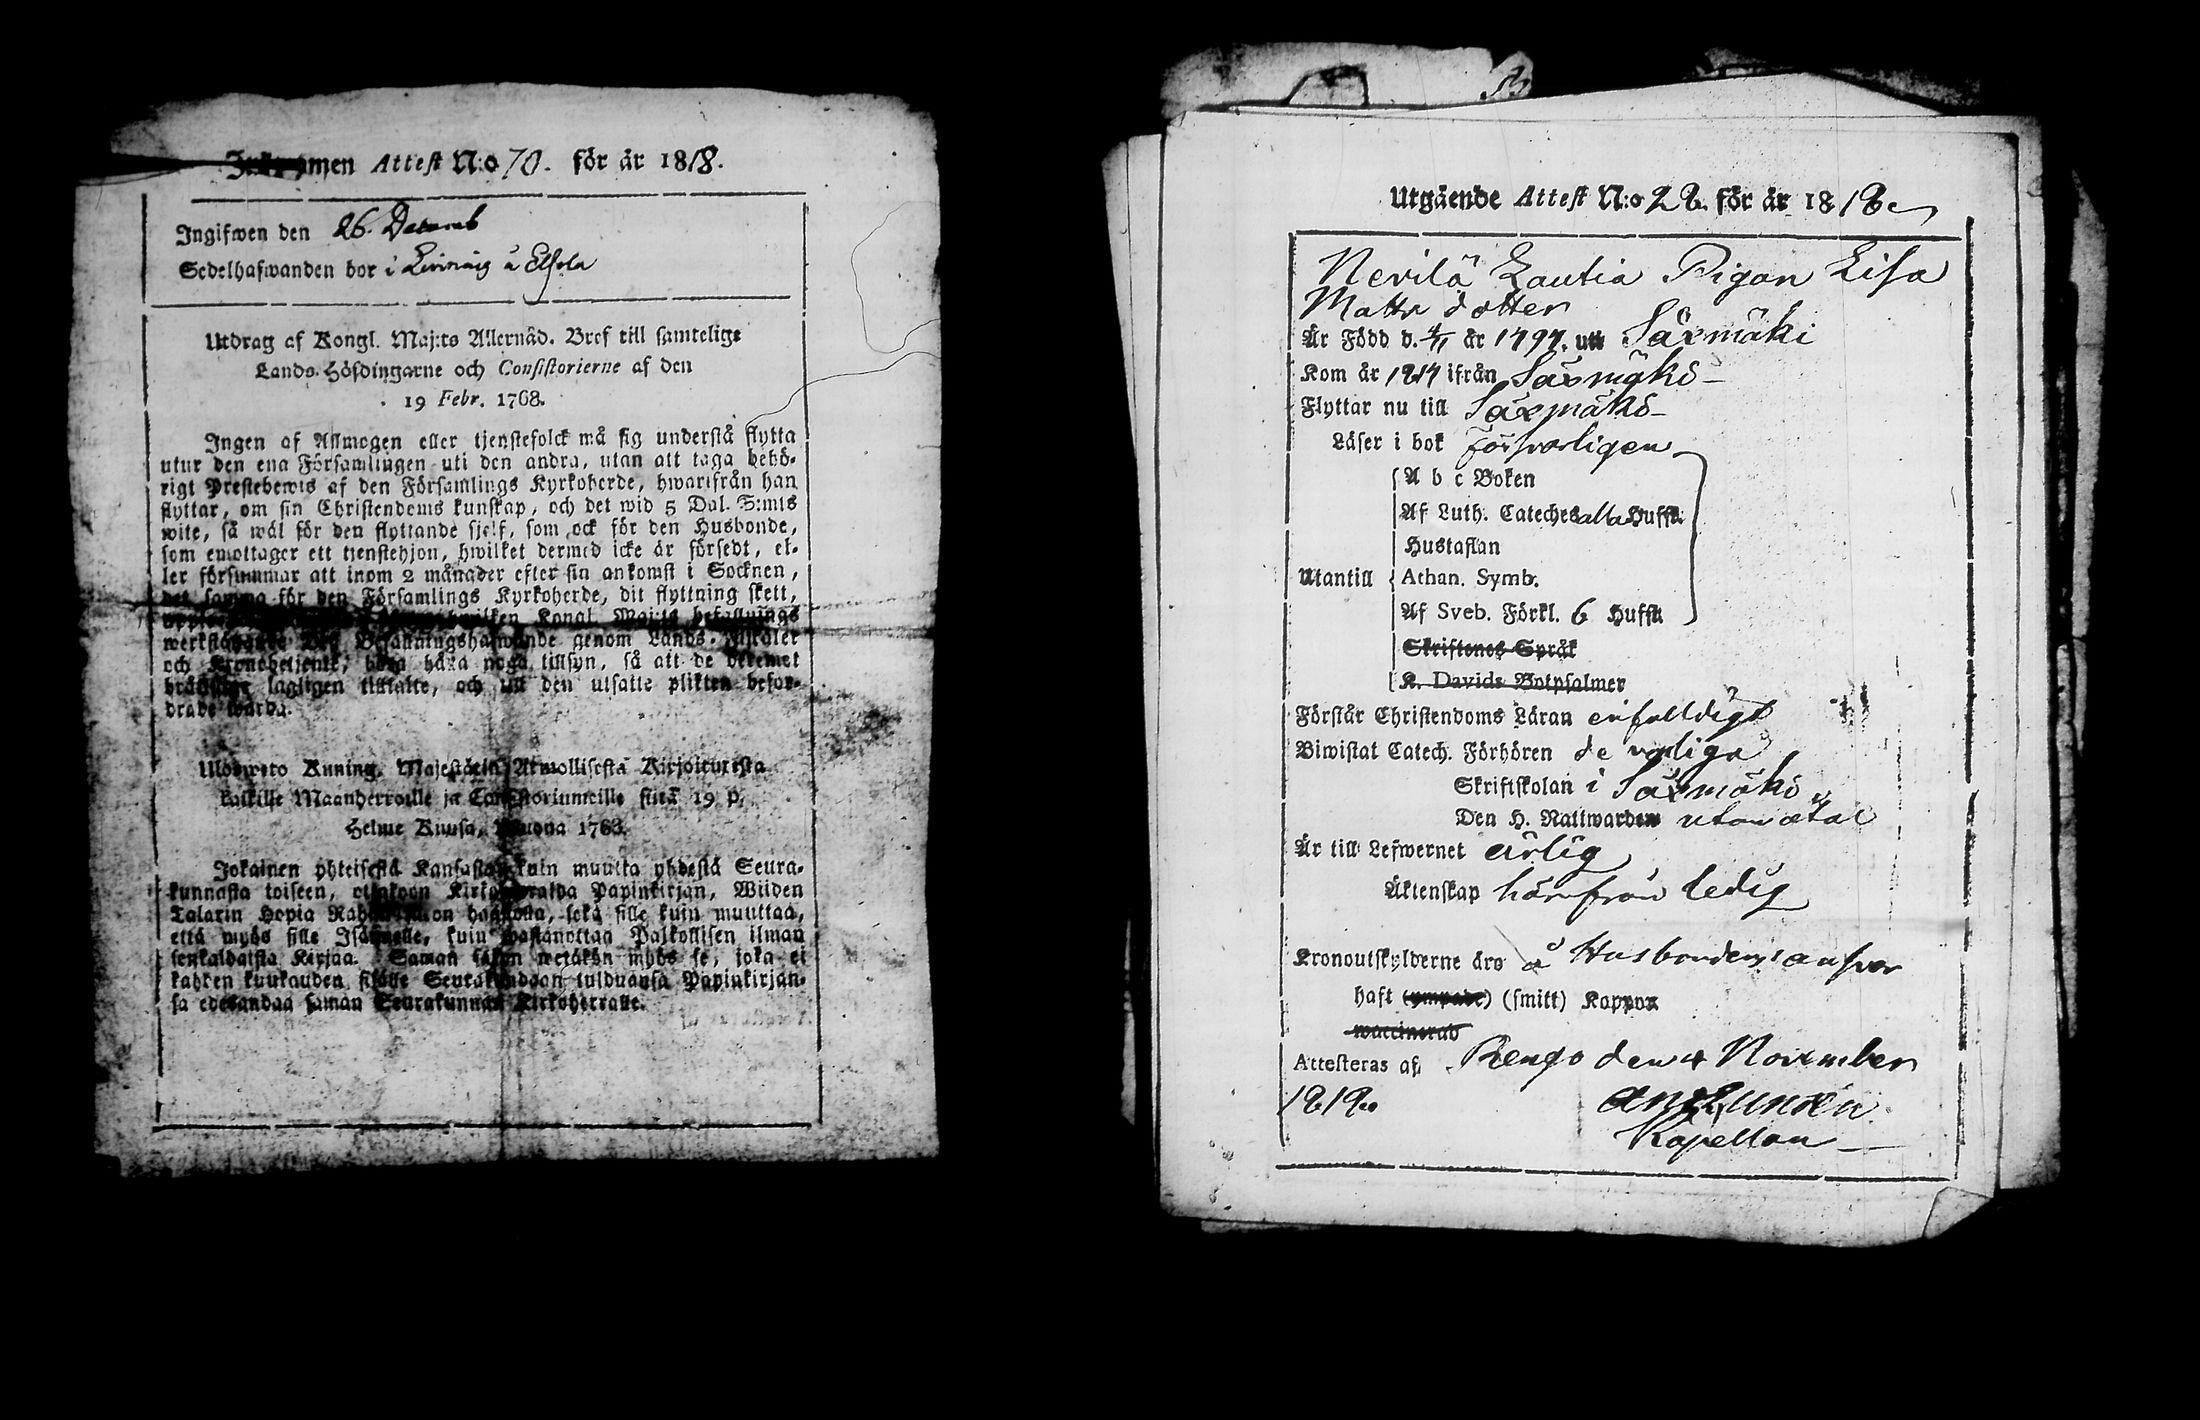 Inkommen Attest N:o 70. för år 1818.
Ingifwen den 26. Decemb
Sedelhafwanden bor i
Utdrag af Kongl. Maj:ts Allernåd. Bref till samtelige
Lands-Höfdingarne och Consistorierne af den
19 Febr. 1768.
Ingen af Allmogen eller tjenstefolck må sig understå flytta
utur den ena Församlingen uti den andra, utan att taga behö-
rigt Prestebewis af den Församlings Kyrkoherde, hwarifrån han
flyttar, om sin Christendoms kunskap, och det wid 5 Dal. S:mts
wite, så wäl för den flyttande sjelf, som ock för den Husbonde,
som emottager ett tjenstehjon, hwilket dermed icke är försedt, el-
ler försummar att inom 2 månader efter sin ankomst i Socknen,
det samma för den Församlings Kyrkoherde, dit flyttning skett,
hwilken Kongl. Maj:ts befallnings
Befallningshafwande genom Lands-Fiskaler
och Kronobetjente, böra hafwa noga tillsyn, så att de deremot
lagligen tilltalte, och till den utsatte plikten befor-
drade warda.
Ulosweto Kuning. Majestätin Armollisesta Kirjoituxesta
kaikille Maanherroille ja Consistoriumeille siitä 19 p.
Helme Kuusa, Wuona 1768.
Jokainen yhteisestä Kansasta, kuin muutta yhdestä Seura-
kunnasta toiseen, ottakoon Kirkoherralda Papinkirjan, Wiiden
Talarin Hopia Rahan uhon haastolla, sekä sille kuin muuttaa,
että myös sille Isännelle, kuin wastanottaa Palkollisen ilman
senkaldaista Kirjaa. Saman sakon wetäkön myös se, joka ei
kahden kuukauden sisälle Seurakundaan tulduansa Papinkirjan-
sa edesandaa saman Seurakunnan Kirkoherralle.
Utgående Attest N:o 28. för år 1818
Nevilä Lautia Pigan Lisa
Matts dotter
Är Född d. 4/1 år 1797. uti Säxmäki
Kom år 1817 ifrån Säxmäki
Flyttar nu till Säxmäki
Läser i bok försvarligen
A b c Boken
Af Luth. Cateches alla Huffst.
Hustaflan
Utantill Athan. Symb.
Af Sveb. Förkl. 6 Huffst.
Skriftenes Språk
K. Davids Botpsalmer
Förstår Christendoms Läran enfalldigt
Biwistat Catech. Förhören de vanliga
Skriftskolan i Säxmäki
Den H. Nattwarden utan åtal
Är till Lefwernet ärlig
Äktenskap härifrån ledig
Kronoutskylderne äro å Husbondens answar
haft (ympade) (smitt) Koppor
waccinerad
Attesteras af Rengo den 4 November
1818.
And Lunden
Kapellan